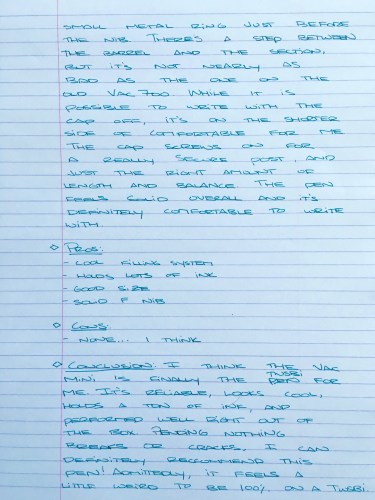 SMALL METAL RING JUST BEFORE
THE NIB. THERE'S A STEP BETWEEN
THE BARREL AND THE SECTION,
BUT IT'S NOT NEARLY AS
BAD AS THE ONE ON THE
OLD VAC 700. WHILE IT IS
POSSIBLE TO WRITE WITH THE
CAP OFF, IT'S ON THE SHORTER
SIDE OF COMFORTABLE FOR ME
THE CAP SCREWS ON FOR
A REALLY SECURE POST, AND
JUST THE RIGHT AMOUNT OF
LENGTH AND BALANCE THE PEN
FEELS SOLID OVERALL AND IT'S
DEFINITELY COMFORTABLE TO WRITE
WITH.
◇ PROS:
- COOL FILLING SYSTEM
- HOLDS LOTS OF INK
- GOOD SIZE
- SOLID F NIB
◇ CONS:
- NONE... I THINK
◇ CONCLUSION: I THINK THE VAC
MINI IS FINALLY THE TWSBI PEN FOR
ME. IT'S RELIABLE, LOOKS COOL,
HOLDS A TON OF INK, AND
PERFORMED WELL RIGHT OUT OF
THE BOX. PENDING NOTHING
BREAKS OR CRACKS, I CAN
DEFINITELY RECOMMEND THIS
PEN! ADMITTEDLY, IT FEELS A
LITTLE WEIRD TO BE 100% ON A TWSBI.